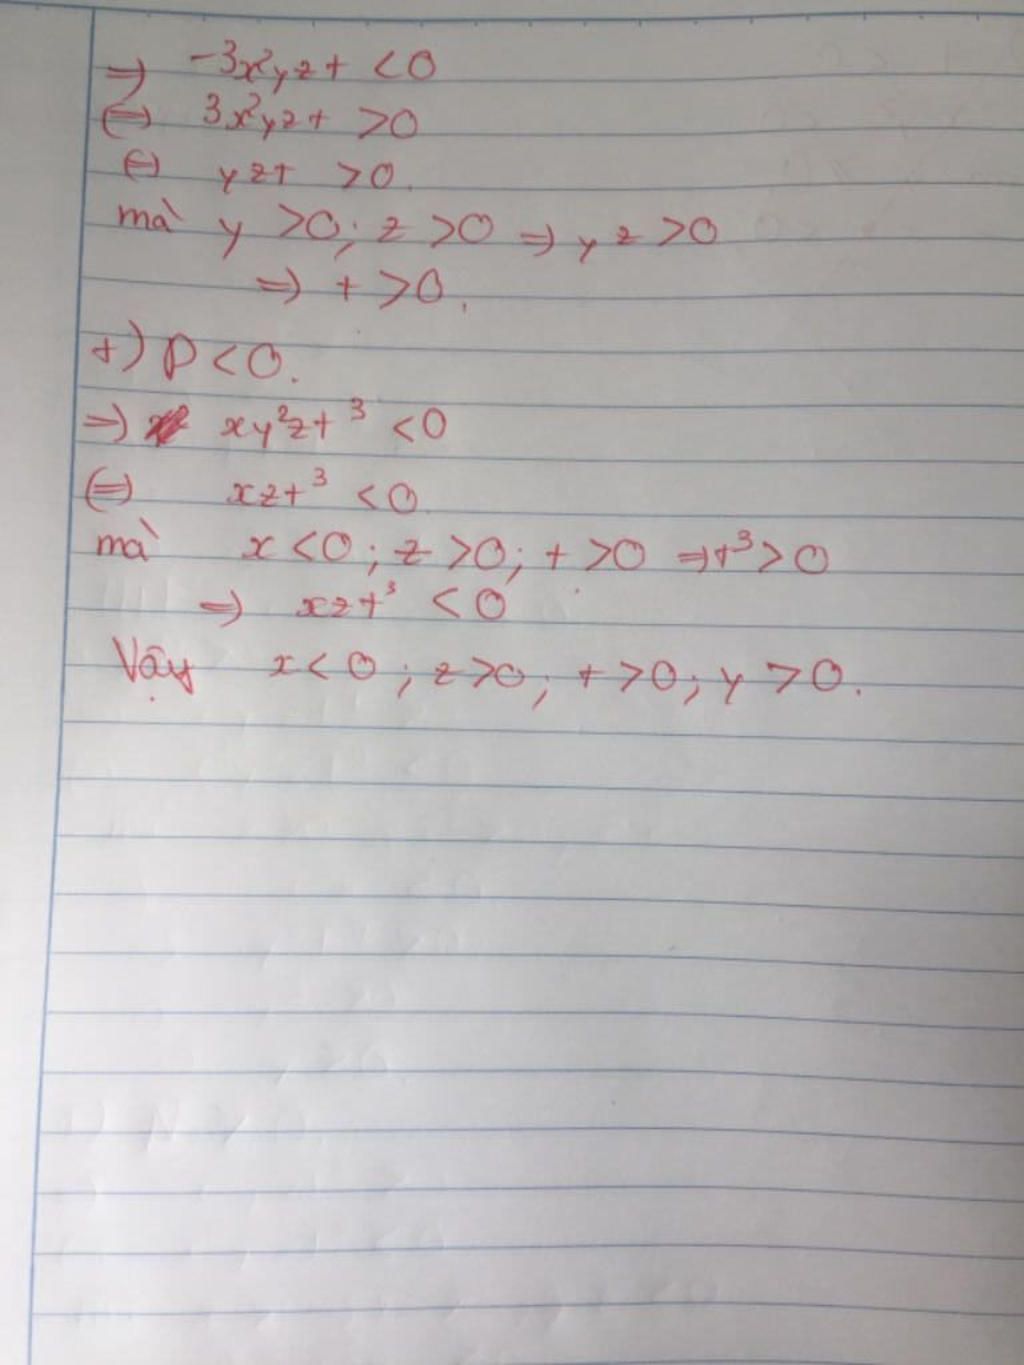 ⇒ -3x²yzt < 0
⇔ 3x²yzt > 0
⇔ yzt > 0.
mà y > 0; z > 0 ⇒ yz > 0
⇒ t > 0.
+) P < 0.
⇒ xy²zt³ < 0
⇔ xzt³ < 0
mà x < 0; z > 0; t > 0 ⇒ t³ > 0
⇒ xzt³ < 0
Vậy x < 0; z > 0; t > 0; y > 0.